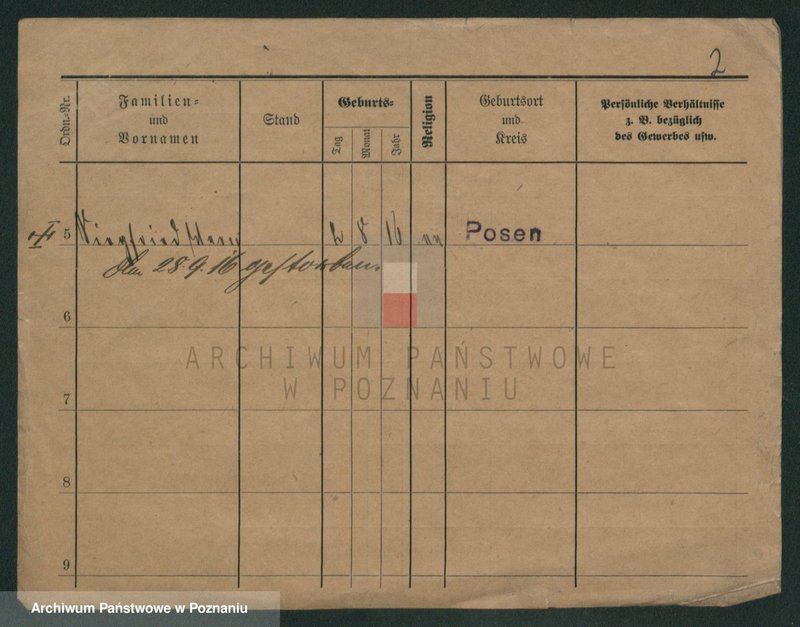 2
Ordn.-Nr.
Familien-
und
Vornamen
Stand
Geburts-
Tag
Monat
Jahr
Religion
Geburtsort
und
Kreis
Persönliche Verhältnisse
z. B. bezüglich
des Gewerbes usw.
5 Siegfried 2 8 16 Posen
den 28.9.16 gestorben.
6
ARCHIWUM PAŃSTWOWE
W POZNANIU
7
8
9
Archiwum Państwowe w Poznaniu